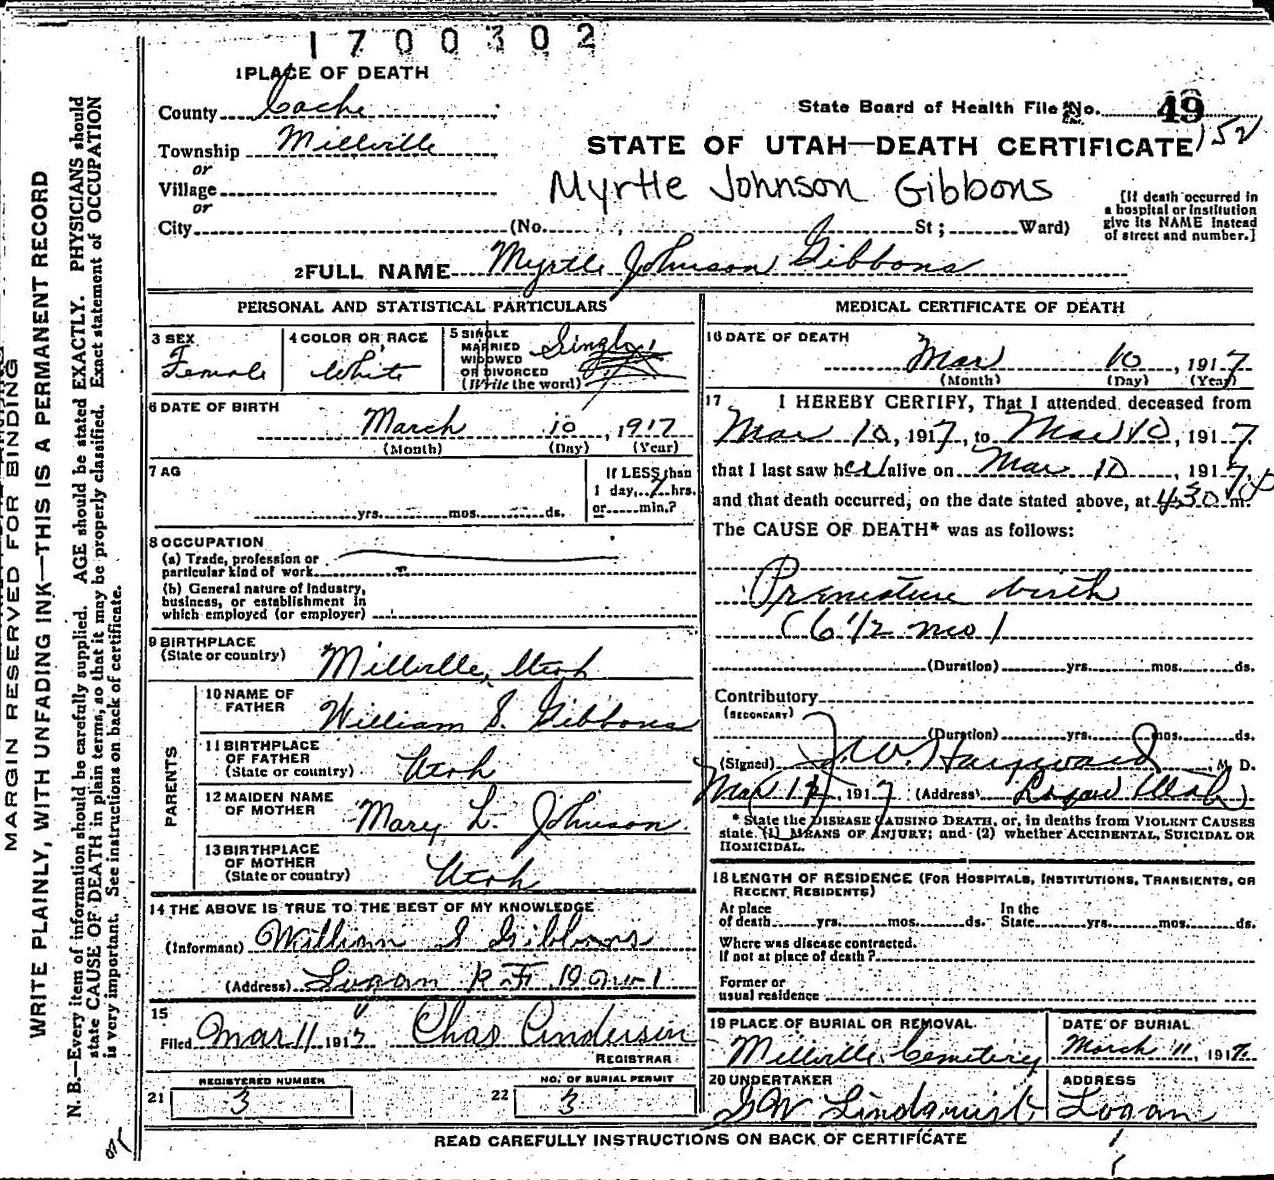 1700302
1 PLACE OF DEATH
County Cache
State Board of Health File No. 49
152
Township Millville
STATE OF UTAH—DEATH CERTIFICATE
or
Village
Myrtle Johnson Gibbons
or
City (No. , St; Ward)
[If death occurred in
a hospital or institution
give its NAME instead
of street and number.]
2 FULL NAME Myrtle Johnson Gibbons
PERSONAL AND STATISTICAL PARTICULARS
3 SEX
Female
4 COLOR OR RACE
White
5 SINGLE
MARRIED
WIDOWED
OR DIVORCED
(Write the word)
Single
6 DATE OF BIRTH
March 10, 1917
(Month) (Day) (Year)
7 AG
yrs. mos. ds.
If LESS than
1 day, 7 hrs.
or min.?
8 OCCUPATION
(a) Trade, profession or
particular kind of work
(b) General nature of industry,
business, or establishment in
which employed (or employer)
9 BIRTHPLACE
(State or country)
Millville, Utah
PARENTS
10 NAME OF
FATHER
William S. Gibbons
11 BIRTHPLACE
OF FATHER
(State or country)
Utah
12 MAIDEN NAME
OF MOTHER
Mary L. Johnson
13 BIRTHPLACE
OF MOTHER
(State or country)
Utah
14 THE ABOVE IS TRUE TO THE BEST OF MY KNOWLEDGE
(Informant) William S Gibbons
(Address) Logan R.F.D. No 1
15
Filed Mar 11 1917 Chas Anderson
REGISTRAR
REGISTERED NUMBER
21 3
NO. OF BURIAL PERMIT
22 3
MEDICAL CERTIFICATE OF DEATH
16 DATE OF DEATH
Mar 10, 1917
(Month) (Day) (Year)
17 I HEREBY CERTIFY, That I attended deceased from
Mar 10, 1917, to Mar 10, 1917.
that I last saw her alive on Mar 10, 1917
and that death occurred, on the date stated above, at 4:30 P m.
The CAUSE OF DEATH* was as follows:
Premature birth
(6 1/2 mo)
(Duration) yrs. mos. ds.
Contributory
(SECONDARY)
(Duration) yrs. mos. ds.
(Signed) J.W. Hayward, M. D.
Mar 12, 1917 (Address) Logan Utah
* State the DISEASE CAUSING DEATH, or, in deaths from VIOLENT CAUSES
state (1) MEANS OF INJURY; and (2) whether ACCIDENTAL, SUICIDAL OR
HOMICIDAL.
18 LENGTH OF RESIDENCE (FOR HOSPITALS, INSTITUTIONS, TRANSIENTS, OR
RECENT RESIDENTS)
At place
of death yrs. mos. ds.
In the
State yrs. mos. ds.
Where was disease contracted.
If not at place of death?
Former or
usual residence
19 PLACE OF BURIAL OR REMOVAL
Millville Cemetery
DATE OF BURIAL
March 11, 1917.
20 UNDERTAKER
G W Lindquist
ADDRESS
Logan
READ CAREFULLY INSTRUCTIONS ON BACK OF CERTIFICATE
MARGIN RESERVED FOR BINDING
WRITE PLAINLY, WITH UNFADING INK—THIS IS A PERMANENT RECORD
N. B.—Every item of information should be carefully supplied. AGE should be stated EXACTLY. PHYSICIANS should
state CAUSE OF DEATH in plain terms, so that it may be properly classified. Exact statement of OCCUPATION
is very important. See instructions on back of certificate.